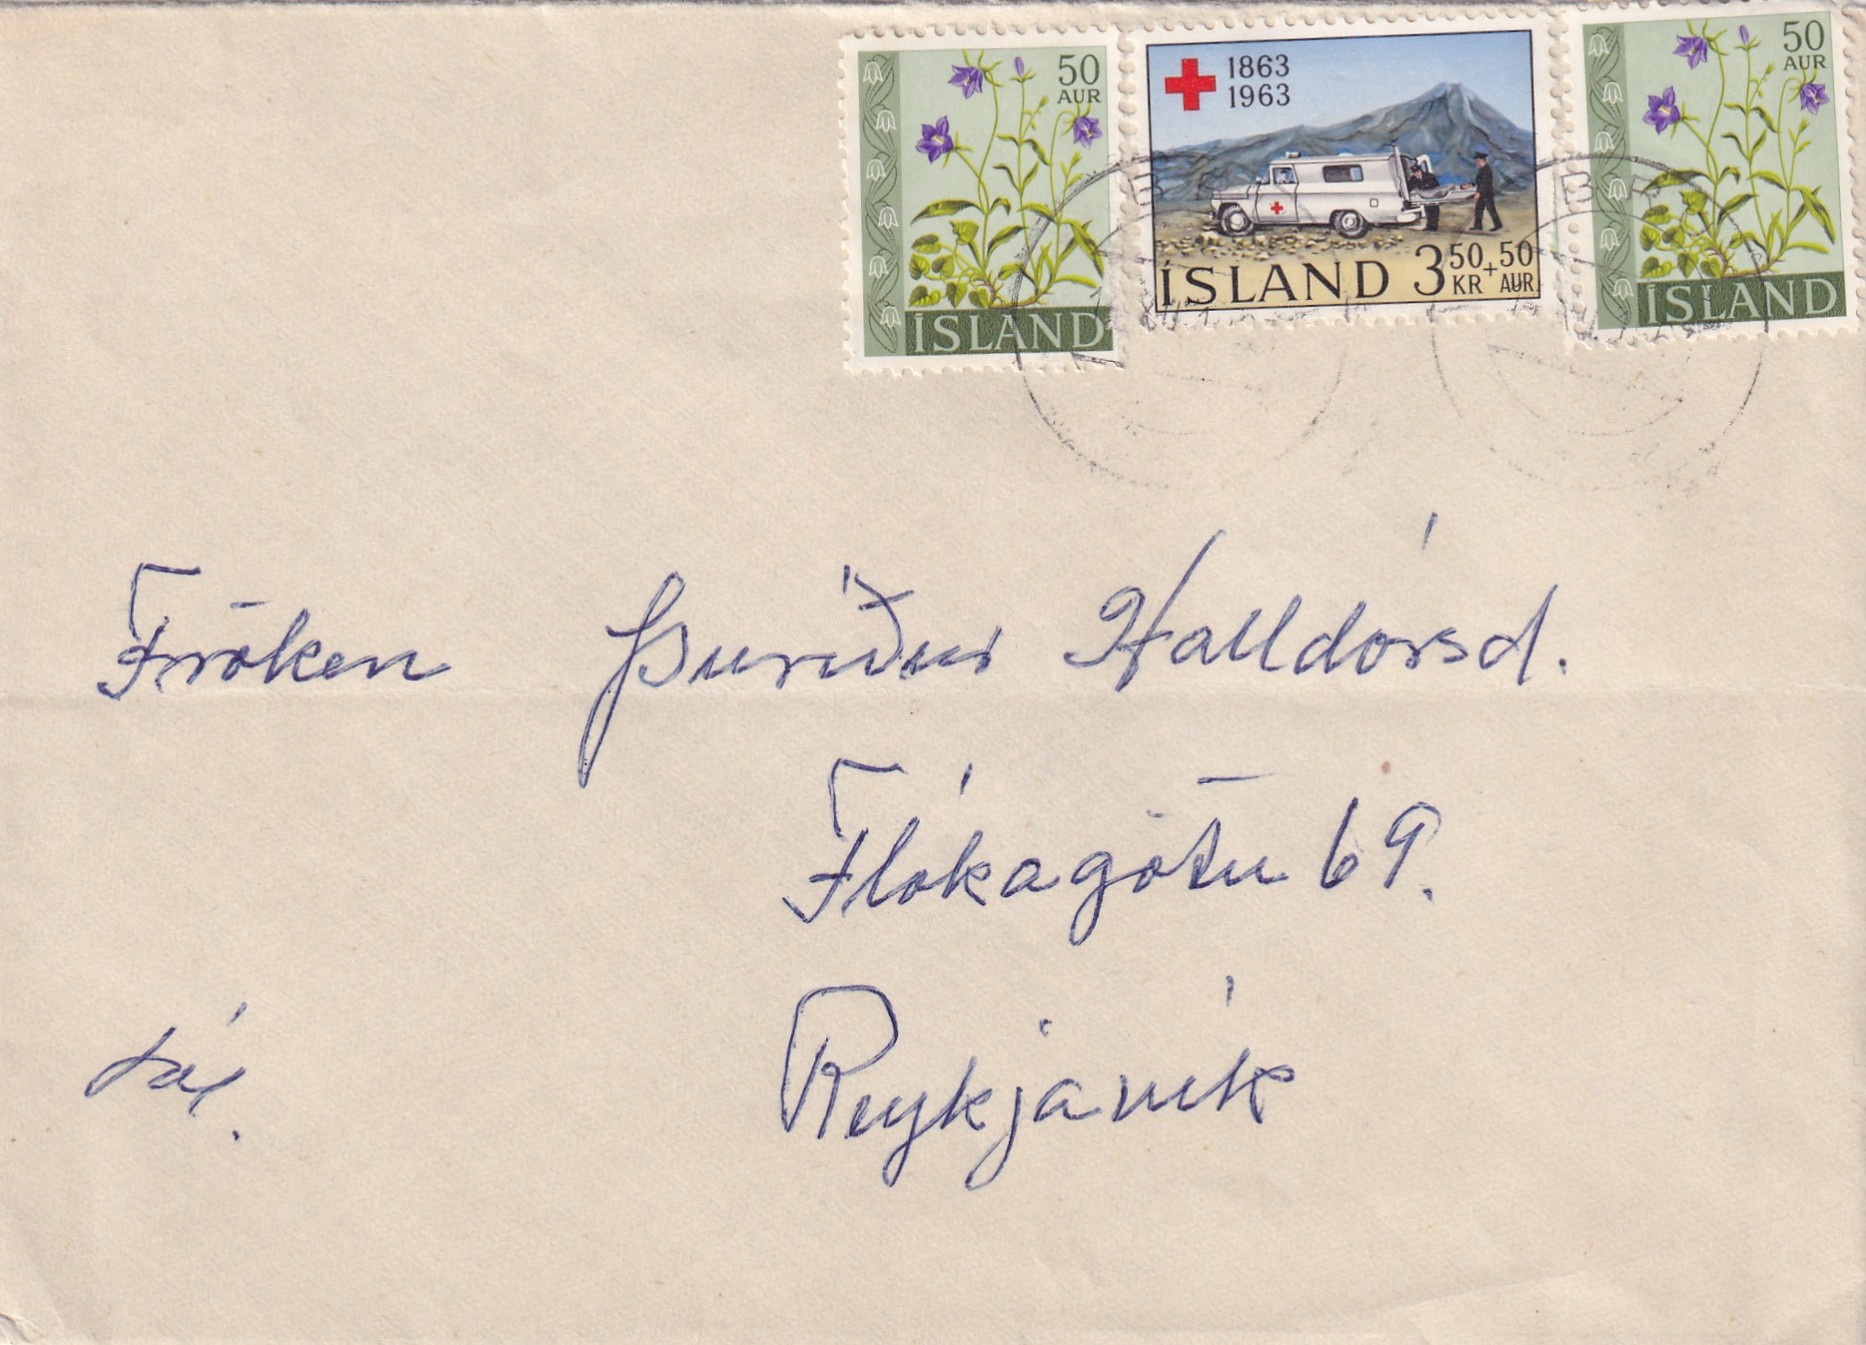 50
AUR
ÍSLAND
1863
1963
ÍSLAND 3 50 KR + 50 AUR
50
AUR
ÍSLAND
Fröken Þuríður Halldórsd.
Flókagötu 69.
Reykjavík